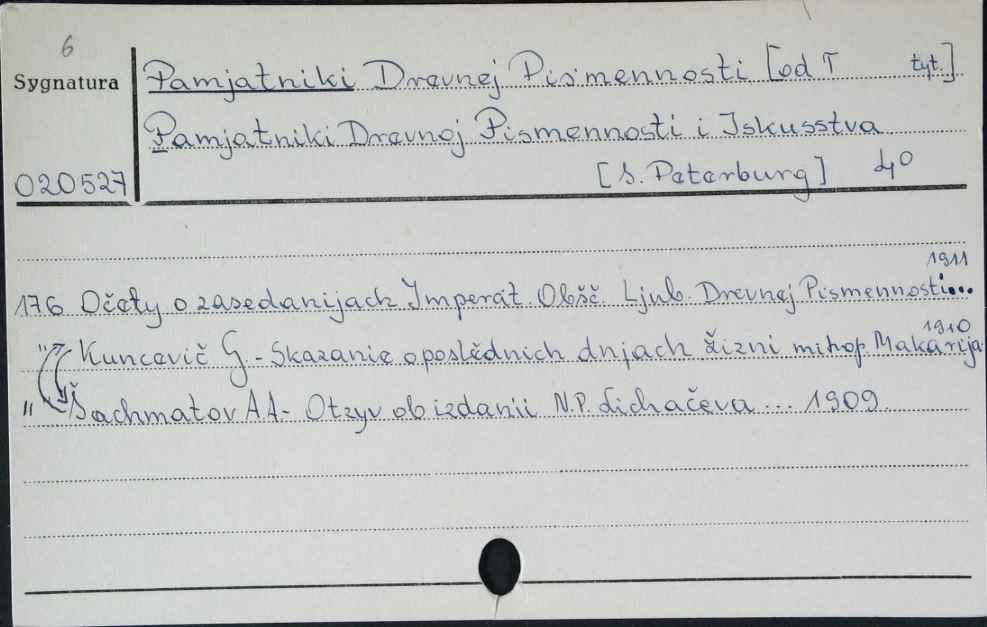 6
Sygnatura
Pamjatniki Drevnej Pis'mennosti [od T tyt.]
Pamjatniki Drevnej Pismennosti i Iskusstva
020527
[S. Peterburg] 4°
1911
176 Očety o zasedanijach Imperat. Obšč. Ljub. Drevnej Pismennosti...
1910
" Kuncevič G. - Skazanie o poslědnich dnjach žizni mitrop. Makarija
" Šachmatov A.A. - Otzyv ob izdanii N.P. Lichačeva ... 1909